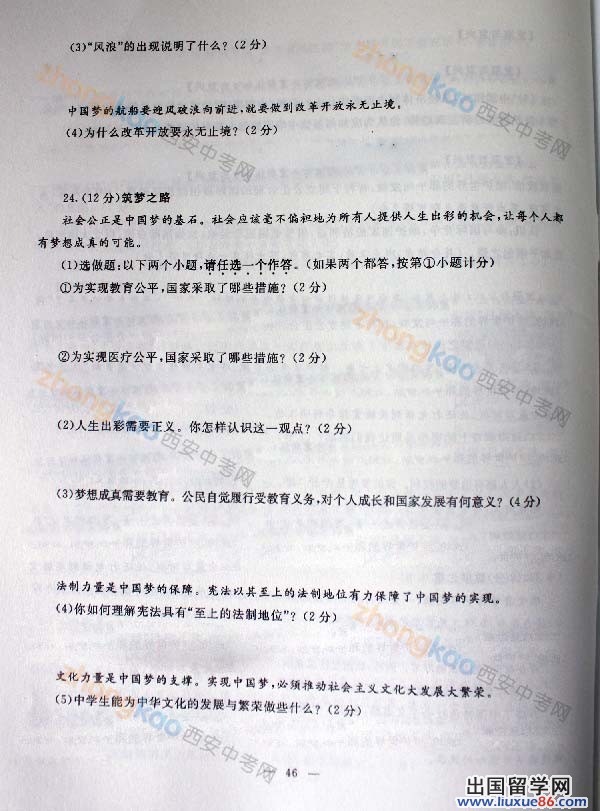 (3)“风浪”的出现说明了什么?(2分)
中国梦的航船要迎风破浪向前进,就要做到改革开放永无止境。
(4)为什么改革开放要永无止境?(2分)
24.(12分)筑梦之路
社会公正是中国梦的基石。社会应该毫不偏袒地为所有人提供人生出彩的机会,让每个人都
有梦想成真的可能。
(1)选做题:以下两个小题,请任选一个作答。(如果两个都答,按第①小题计分)
①为实现教育公平,国家采取了哪些措施?(2分)
②为实现医疗公平,国家采取了哪些措施?(2分)
(2)人生出彩需要正义。你怎样认识这一观点?(2分)
(3)梦想成真需要教育。公民自觉履行受教育义务,对个人成长和国家发展有何意义?(4分)
法制力量是中国梦的保障。宪法以其至上的法制地位有力保障了中国梦的实现。
(4)你如何理解宪法具有“至上的法制地位”?(2分)
文化力量是中国梦的支撑。实现中国梦,必须推动社会主义文化大发展大繁荣。
(5)中学生能为中华文化的发展与繁荣做些什么?(2分)
— 46 —
zhongkao西安中考网
zhongkao西安中考网
zhongkao西安中考网
zhongkao西安中考网
zhongkao西安中考网
zhongkao西安中考网
出国留学网
www.liuxue86.com